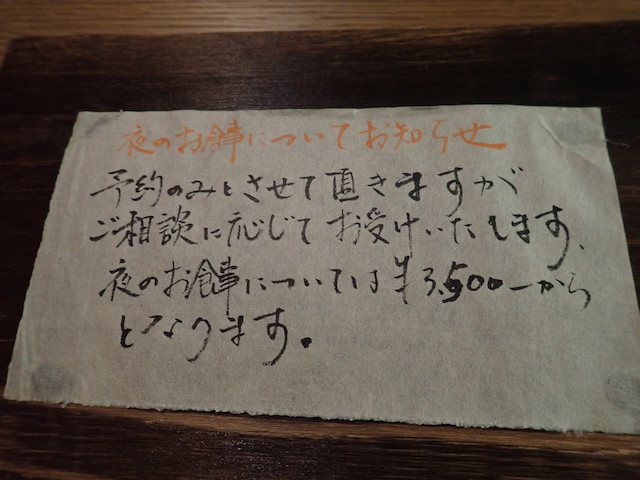 夜のお食事についてお知らせ
予約のみとさせて直きますが
ご相談に応じてお受けいたします、
夜のお食事については¥3,500ーから
となります。